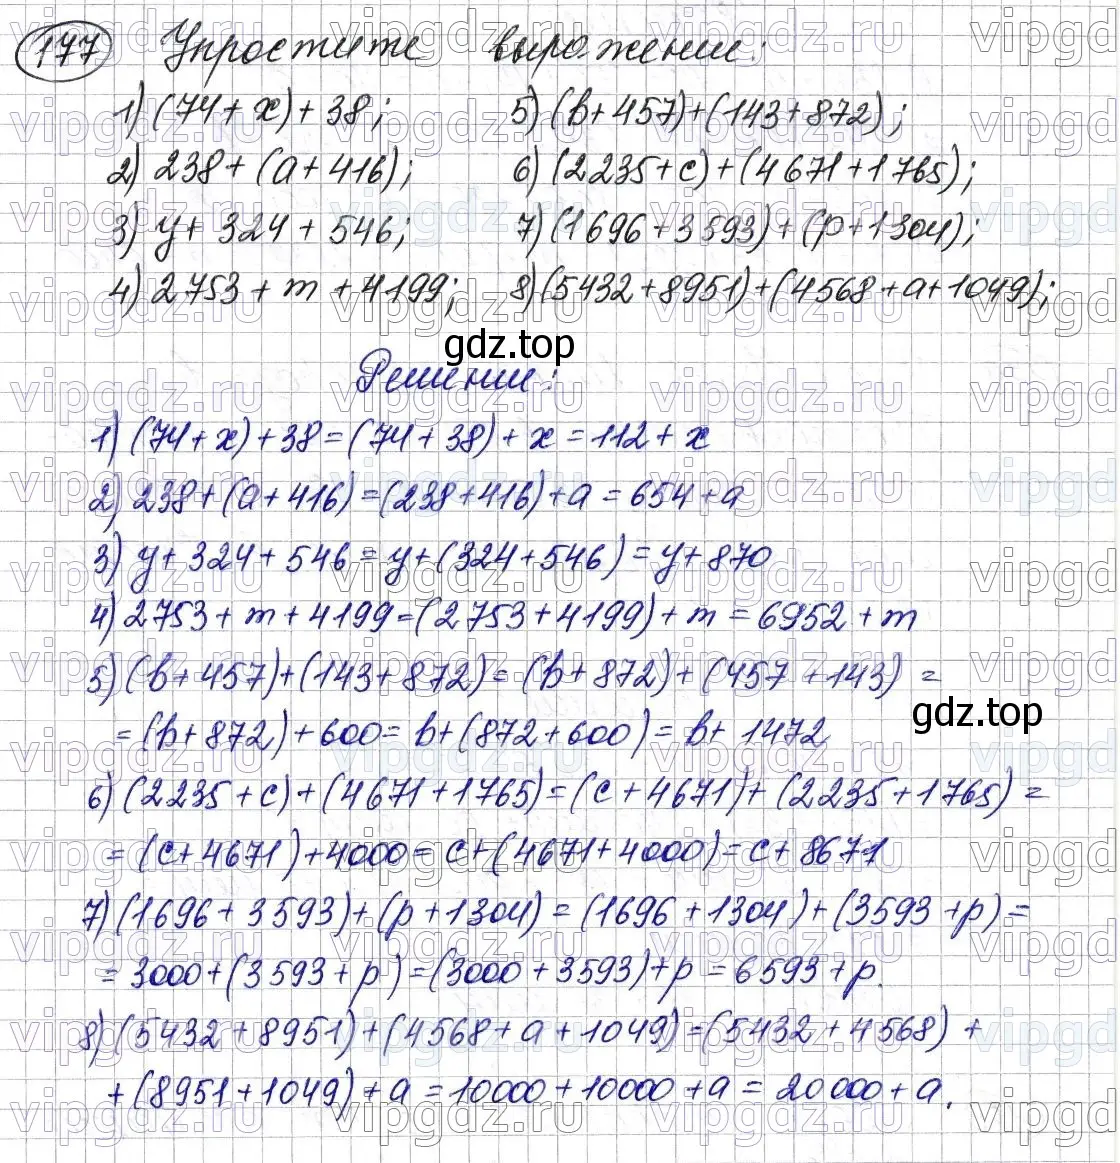 177 Упростите выражение:
1) (74+x)+38; 5) (b+457)+(143+872);
2) 238+(a+416); 6) (2235+c)+(4671+1765);
3) y+324+546; 7) (1696+3593)+(p+1304);
4) 2753+m+4199; 8) (5432+8951)+(4568+a+1049);
gdz.top
Решение:
1) (74+x)+38=(74+38)+x=112+x
2) 238+(a+416)=(238+416)+a=654+a
3) y+324+546=y+(324+546)=y+870
4) 2753+m+4199=(2753+4199)+m=6952+m
5) (b+457)+(143+872)=(b+872)+(457+143)=
gdz.top
=(b+872)+600=b+(872+600)=b+1472
6) (2235+c)+(4671+1765)=(c+4671)+(2235+1765)=
=(c+4671)+4000=c+(4671+4000)=c+8671
7) (1696+3593)+(p+1304)=(1696+1304)+(3593+p)=
=3000+(3593+p)=(3000+3593)+p=6593+p.
8) (5432+8951)+(4568+a+1049)=(5432+4568)+
+(8951+1049)+a=10000+10000+a=20000+a.
vipgdz.ru